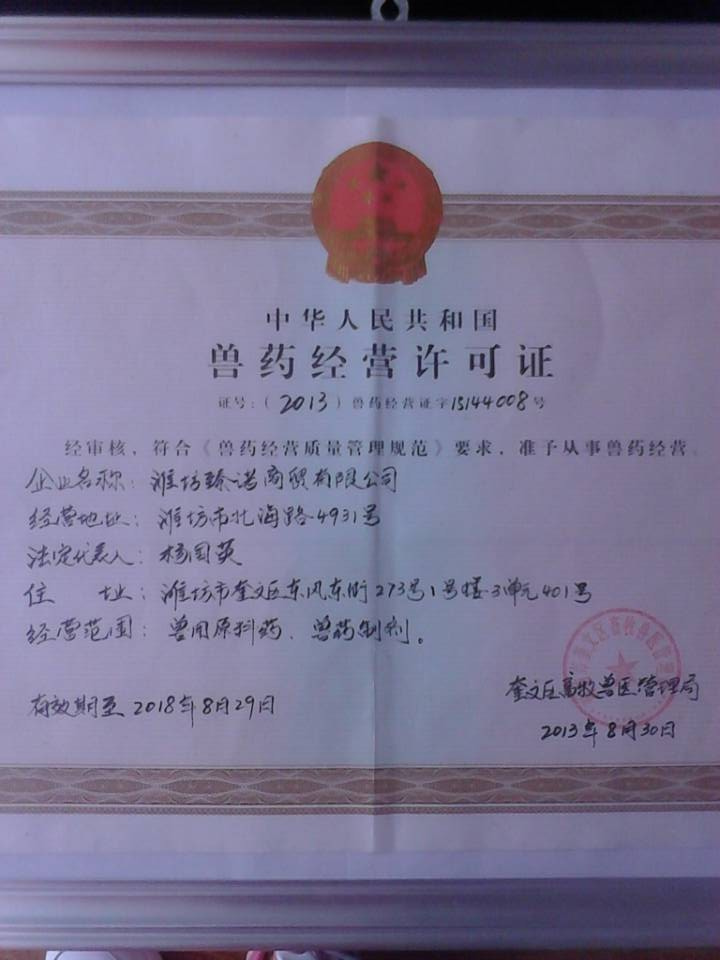 中华人民共和国
兽药经营许可证
证号:(2013)兽药经营证字15144008号
经审核，符合《兽药经营质量管理规范》要求，准予从事兽药经营。
企业名称：潍坊臻诺商贸有限公司
经营地址：潍坊市北海路4931号
法定代表人：杨国英
住 址：潍坊市奎文区东风东街273号1号楼3单元401号
经营范围：兽用原料药、兽药制剂。
奎文区畜牧兽医管理局
有效期至 2018年8月29日
2013年8月30日